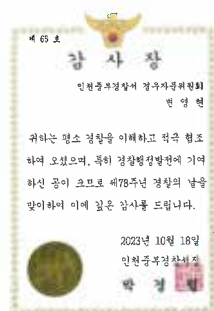 제 65 호
감 사 장
인천중부경찰서 경우자문위원회
변 영 현
귀하는 평소 경찰을 이해하고 적극 협조
하여 오셨으며, 특히 경찰행정발전에 기여
하신 공이 크므로 제78주년 경찰의 날을
맞이하여 이에 깊은 감사를 드립니다.
2023년 10월 18일
인천중부경찰서장
박 경